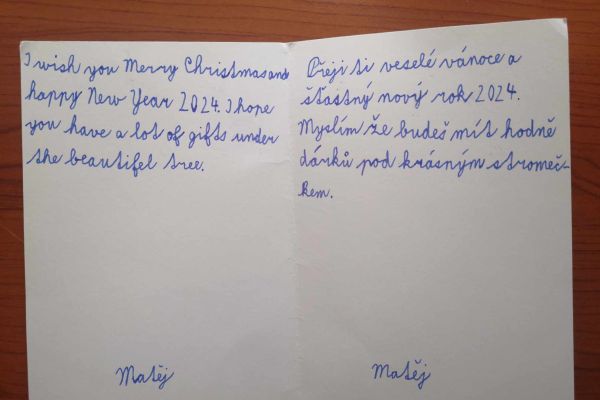 I wish you Merry Christmas and
happy New Year 2024. I hope
you have a lot of gifts under
the beautifel tree.
Matěj
Přeji ti veselé vánoce a
šťastný nový rok 2024.
Myslím že budeš mít hodně
dárků pod krásným stromeč-
kem.
Matěj